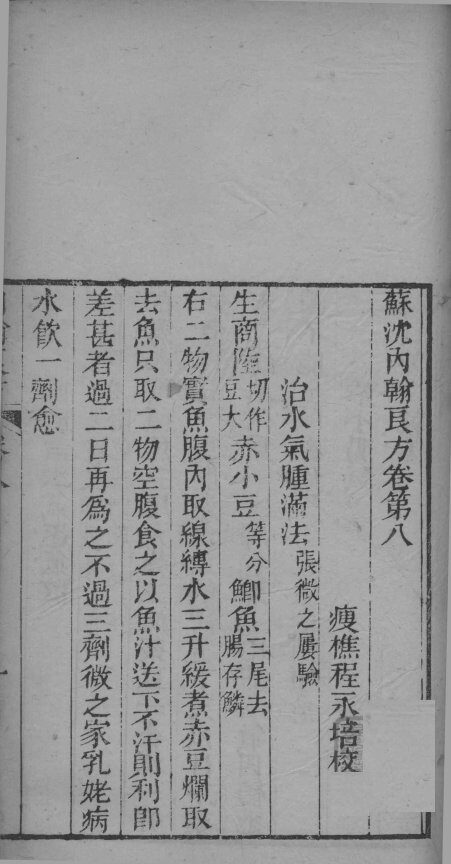 蘇沈內翰良方卷第八
瘦樵程永培校
治水氣腫滿法張微之屢驗
生商陸切作豆大赤小豆等分鯽魚三尾去腸存鱗
右二物實魚腹內取線縛水三升緩煮赤豆爛取
去魚只取二物空腹食之以魚汁送下不汗則利卽
差甚者過二日再為之不過三劑微之家乳姥病
水飲一劑愈